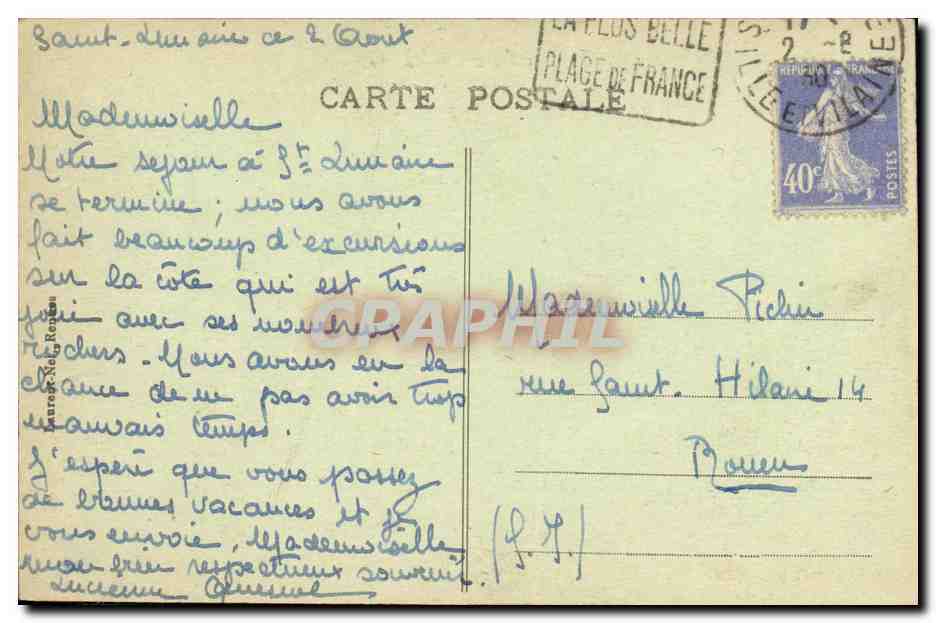 Saint-Lunaire ce 2 Août
LA PLUS BELLE
PLAGE DE FRANCE
2 -8
30
ILLE ET VILAINE
REPUBLIQUE FRANÇAISE
40c
POSTES
CARTE POSTALE
Mademoiselle
Notre séjour à St Lunaire
se termine ; nous avons
fait beaucoup d'excursions
sur la côte qui est très
jolie avec ses nombreux
rochers - Nous avons eu la
chance de ne pas avoir trop
mauvais temps.
J'espère que vous passez
de bonnes vacances et je
vous envoie, Mademoiselle
mon bien respectueux souvenir.
Lucienne Quesnel
Laurent-Nel, Rennes
Mademoiselle Pichin
rue Saint-Hilaire 14
Rouen
(S. I.)
CPGRAPHIL